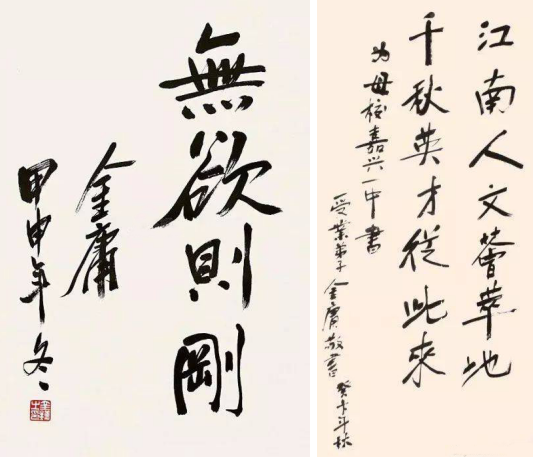 無欲則剛
金庸
甲申年冬
江南人文薈萃地
千秋英才從此來
为母校嘉兴一中書
受業弟子 金庸敬書 癸未年秋